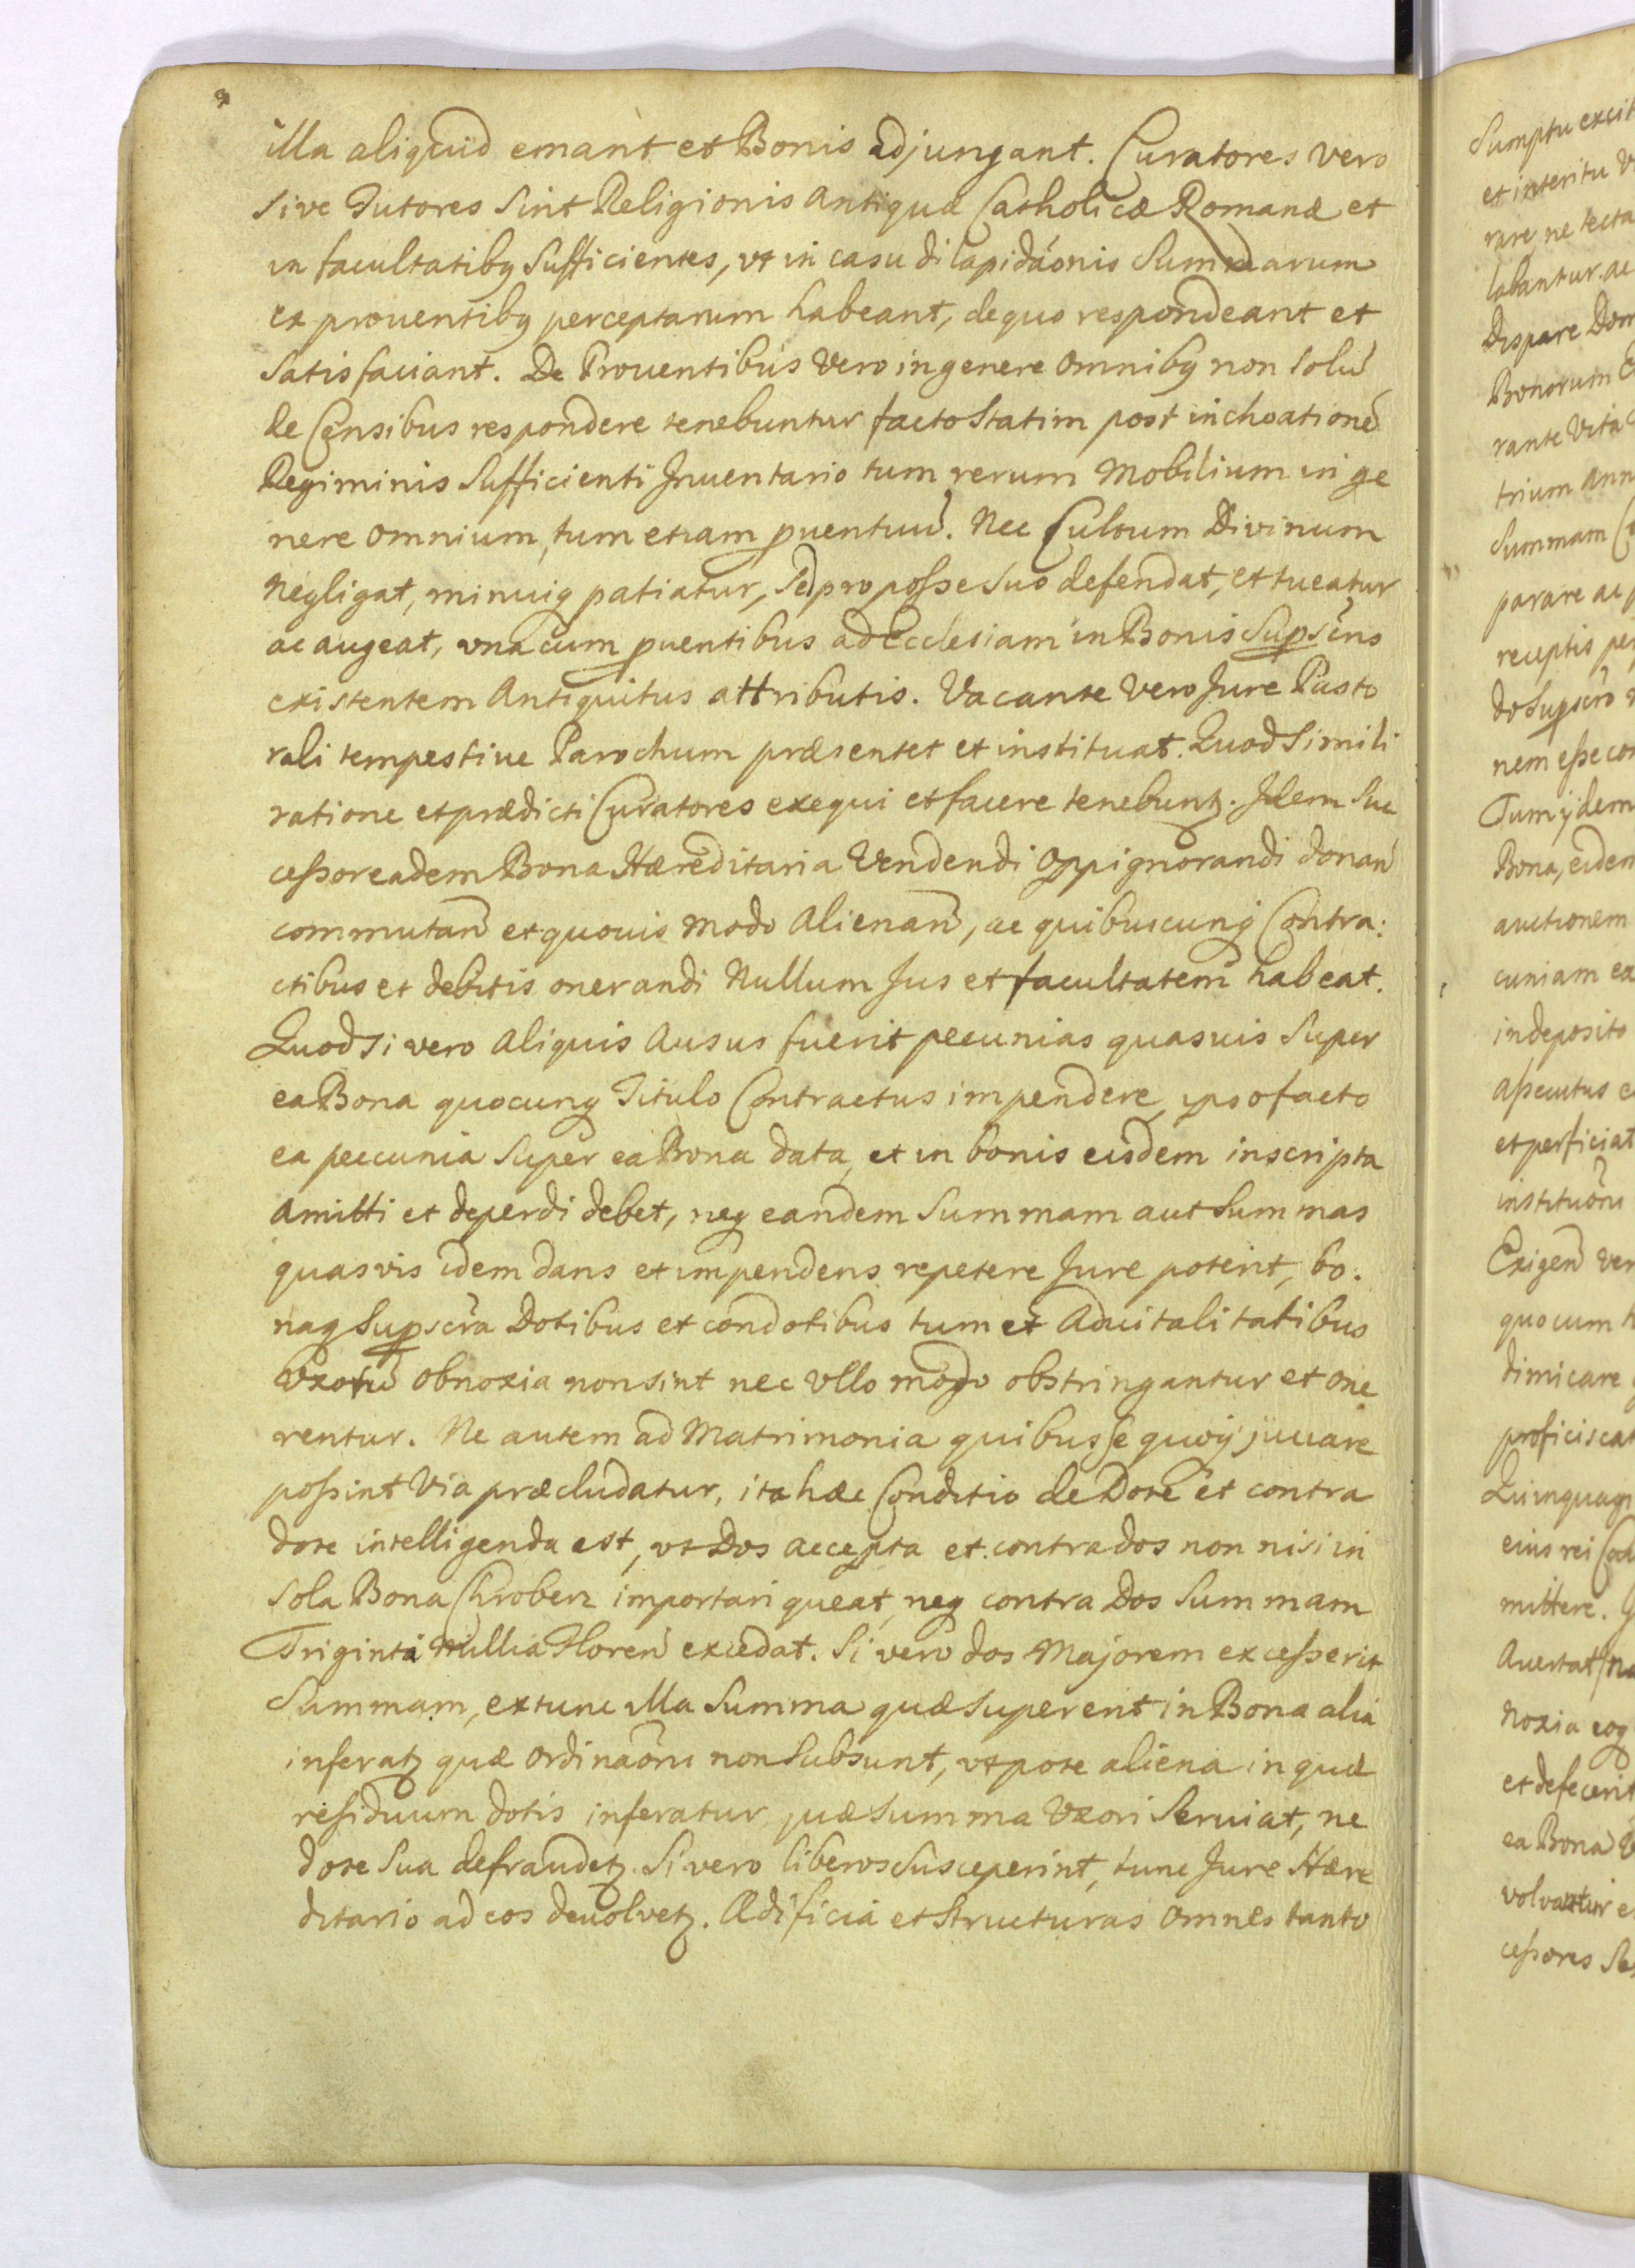 illa aliquid emant et Bonis adjungant. Curatores vero
sive Tutores sint Religionis Antiquæ Catholicæ Romanæ et
in facultatibq sufficientes, vt in casu dilapidaõnis Summarum
ex prouentibq perceptarum habeant, de quo respondeant et
satisfaciant. De Prouentibus vero in genere omnibq non solũ
de Censibus respondere tenebuntur facto statim post inchoationẽ
Regiminis sufficienti Inuentario tum rerum Mobilium in ge
nere omnium, tum etiam ꝓuentuũ. Nec Cultum Divinum
negligat, minuiq patiatur, sed pro posse suo defendat, et tueatur
ac augeat, vna cum ꝓuentibus ad Ecclesiam in Bonis supscris
existentem Antiquitus attributis. Vacante vero Jure Pasto
rali tempestiue Parochum præsentet et instituat. Quod simili
ratione et prædicti Curatores exequi et facere tenebuntꝫ. Idem Suc
cessor eadem Bona Hæreditaria Vendendi oppignorandi donañ
commutañ et quouis modo Alienañ, ac quibuscunq Contra:
ctibus et debitis onerandi Nullum Jus et facultatem habeat.
Quod si vero Aliquis Ausus fuerit pecunias quasuis super
ea Bona quocunq Titulo Contractus impendere, ipso facto
ea peccunia super ea Bona data, et in bonis eisdem inscripta
Amitti et deperdi debet, neq eandem Summam aut Summas
quasvis idem dans et impendens repetere Jure poterit, bo.
naq supscra Dotibus et condotibus tum et Aduitalitatibus
Vxorũ obnoxia non sint nec vllo modo obstringantur et one
rentur. Ne autem ad Matrimonia quibus se quoq juuare
possint Via præcludatur, ita hæc Conditio de Dote et contra
dote intelligenda est, vt Dos accepta et contrados non nisi in
sola Bona Chroberz importari queat, neq contra Dos Summam
Triginta Millia Floreñ excedat. Si vero dos Majorem excesserit
Summam, extunc illa Summa quæ superent in Bona alia
inferatꝫ quæ ordinaõni non subsunt, vtpote aliena in quæ
residuum dotis inferatur quæ Summa Vxori seruiat, ne
dote sua defraudetꝫ. Si vero liberos susceperint, tunc Jure Hære
ditario ad eos deuolvetꝫ. Ædificia et structuras omnes tanto